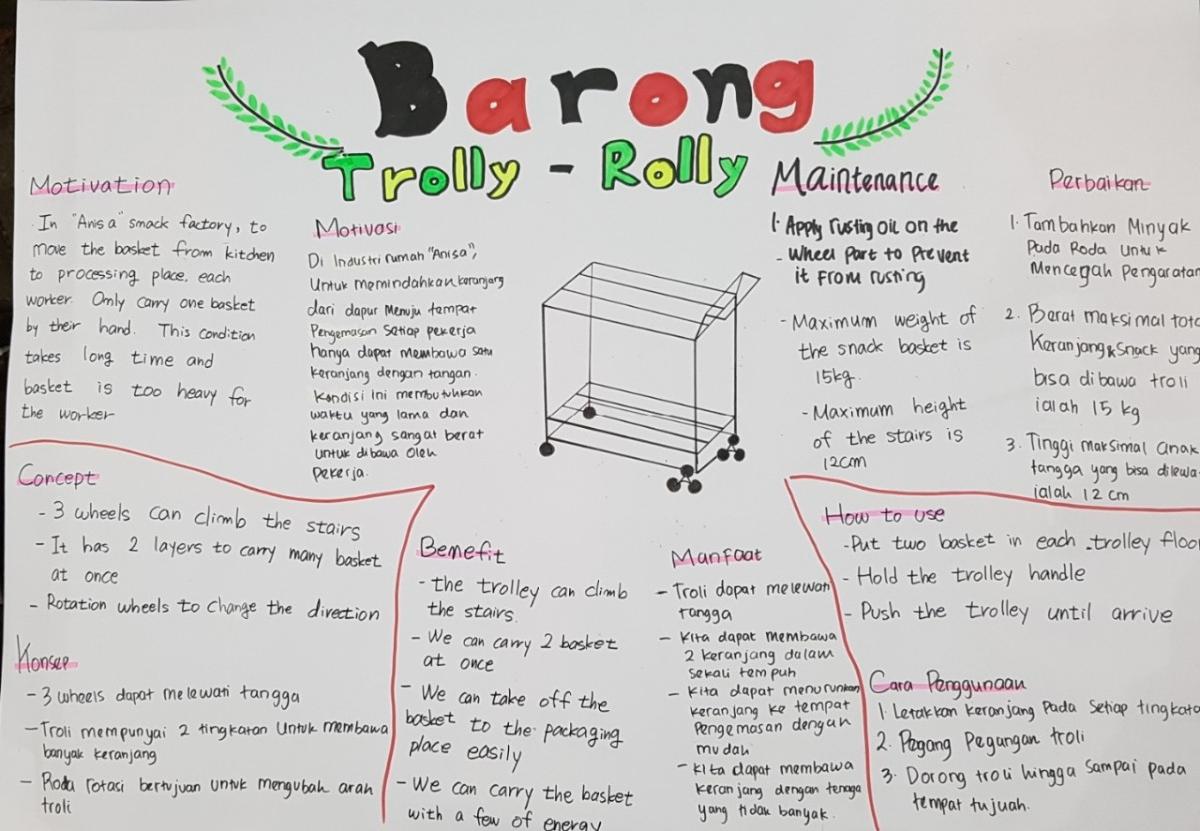 Barong
Trolly - Rolly
Motivation
In "Anisa" smack factory, to
move the basket from kitchen
to processing place, each
worker. Only carry one basket
by their hand. This condition
takes long time and
basket is too heavy for
the worker
Motivasi
Di Industri rumah "Anisa",
Untuk memindahkan keranjang
dari dapur Menuju tempat
Pengemasan Setiap pekerja
hanya dapat membawa satu
keranjang dengan tangan.
Kondisi Ini membutuhkan
waktu yang lama dan
keranjang sangat berat
untuk dibawa oleh
pekerja.
Maintenance
1. Apply rusting oil on the
- Wheel part to prevent
it from rusting
- Maximum weight of
the snack basket is
15kg.
- Maximum height
of the stairs is
12cm
Perbaikan
1. Tambahkan Minyak
Pada Roda Untuk
Mencegah Pengaratan
2. Berat maksimal tota
Keranjang & Snack yang
bisa dibawa troli
ialah 15 kg
3. Tinggi maksimal anak
tangga yang bisa dilewa
ialah 12 cm
Concept
- 3 wheels can climb the stairs
- It has 2 layers to carry many basket
at once
- Rotation wheels to change the direction
Konsep
- 3 wheels dapat melewati tangga
- Troli mempunyai 2 tingkatan Untuk membawa
banyak keranjang
- Roda rotasi bertujuan untuk mengubah arah
troli
Benefit
- the trolley can climb
the stairs.
- We can carry 2 basket
at once
- We can take off the
basket to the packaging
place easily
- We can carry the basket
with a few of energy
Manfaat
- Troli dapat melewati
tangga
- Kita dapat membawa
2 keranjang dalam
sekali tempuh
- Kita dapat menurunkan
keranjang ke tempat
Pengemasan dengan
mudah
- Kita dapat membawa
keranjang dengan tenaga
yang tidak banyak.
How to use
- Put two basket in each trolley floor
- Hold the trolley handle
- Push the trolley until arrive
Cara Penggunaan
1. Letakkan keranjang Pada Setiap tingkata
2. Pegang Pegangan troli
3. Dorong troli hingga sampai pada
tempat tujuah.